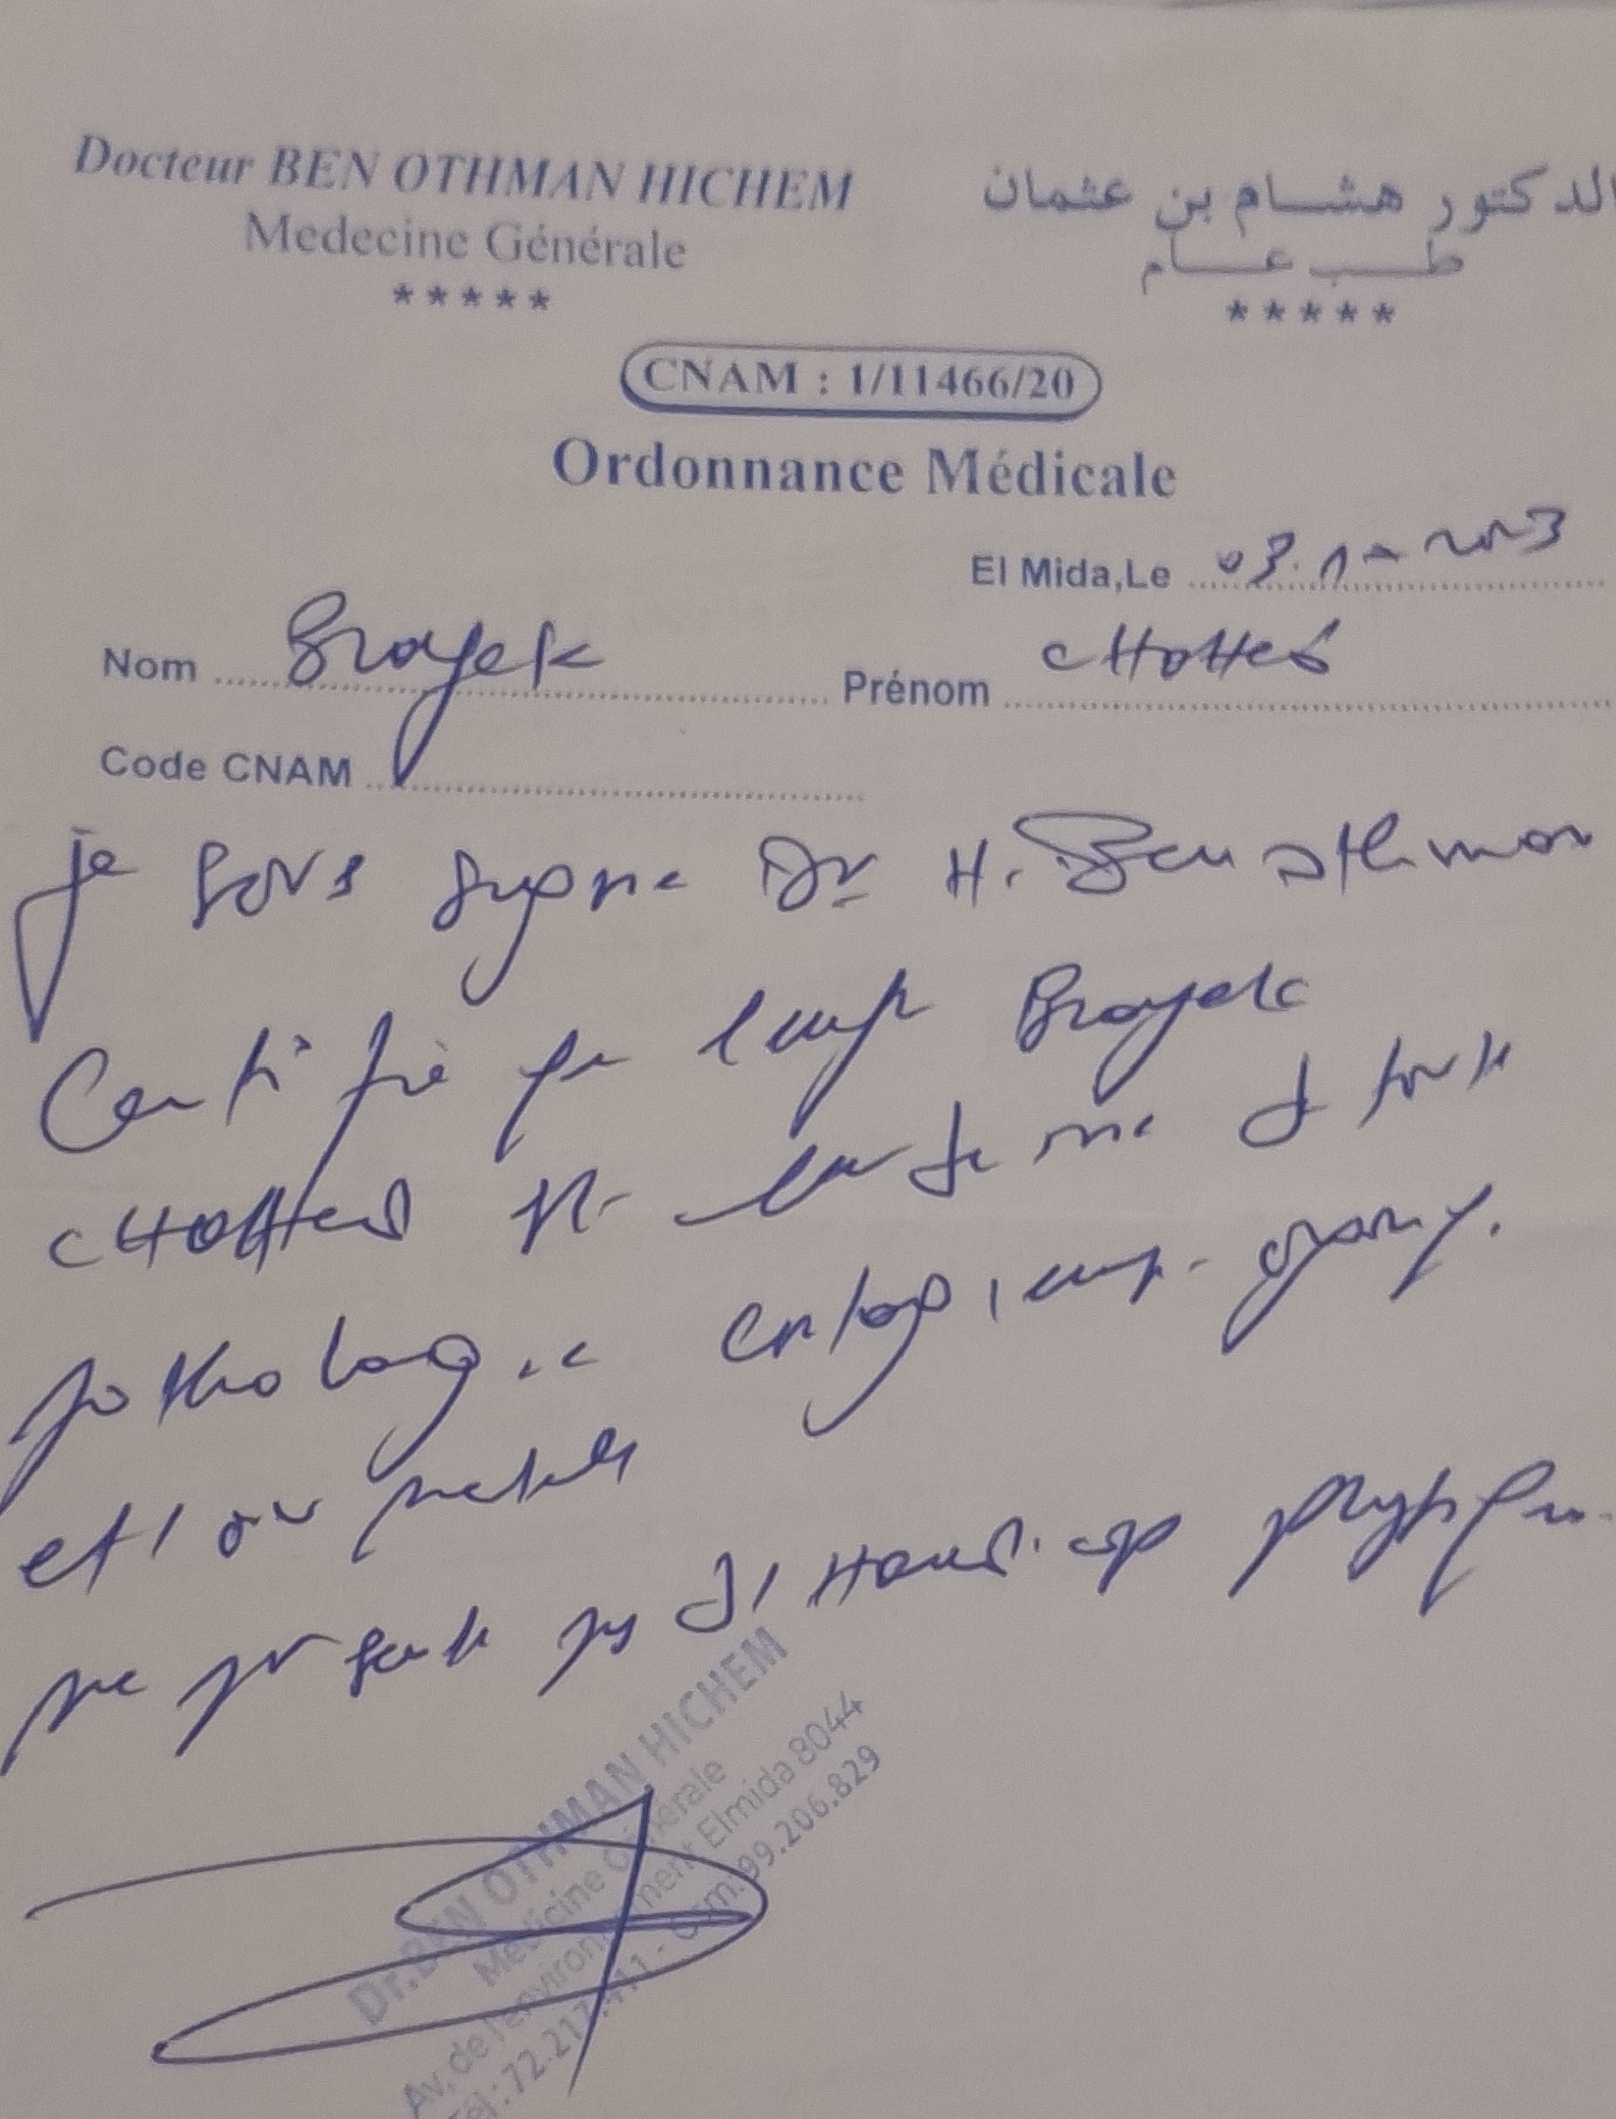 Docteur BEN OTHMAN HICHEM
Medecine Générale
*****
الدكتور هشام بن عثمان
طب عام
*****
CNAM : 1/11466/20
Ordonnance Médicale
El Mida,Le 03.10-2023
Nom Brayek
Prénom CHAHED
Code CNAM
je sous signe Dr H. Ben othman
Certifie que Brayek
indemne de toute
pathologie contagieuse
et / ou mentale
ne presente pas d'Handicap physique.
Dr.BEN OTHMAN HICHEM
Medicine Générale
Av. de l'environnement Elmida 8044
Tél.:72.217.411 - Gsm:99.206.829